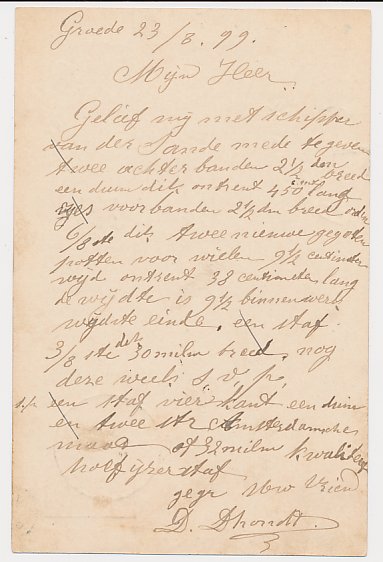 Groede 23/8. 99.
Mijn Heer
Gelief mij met schipper
van der Sande mede te geven
twee achter banden 2 1/2 dm breed
een duim dik ontrent 450 lang
voorbanden 2 1/2 dm breed
6/8 ste dik twee nieuwe gegoten
potten voor wielen 9 1/2 centimeter
wijd ontrent 38 centimeter lang
de wijdte is 9 1/2 binnenwerk
wijdste einde. een staf
3/8 ste dik 30 milm breed. nog
deze week s. v. p.
een staf vierkant een duim
en twee str Amsterdamsche
maad of 32 milm kwaliteit
hoefijzerstaf
gegr Uw Vriend
D. Dhondt.